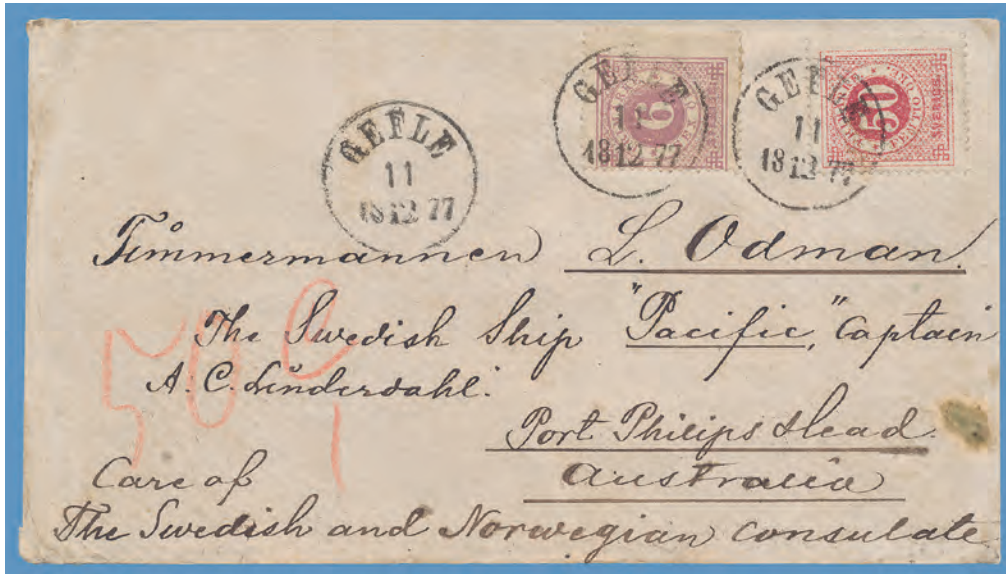 GEFLE
11
18 12 77
GEFLE
11
18 12 77
6
GEFLE
11
18 12 77
50
SVERIGE
Timmermannen L. Odman.
The Swedish Ship "Pacific," Captain
A. C. Linderdahl.
Port Philips Head.
Australia
Care of
The Swedish and Norwegian Consulate
50